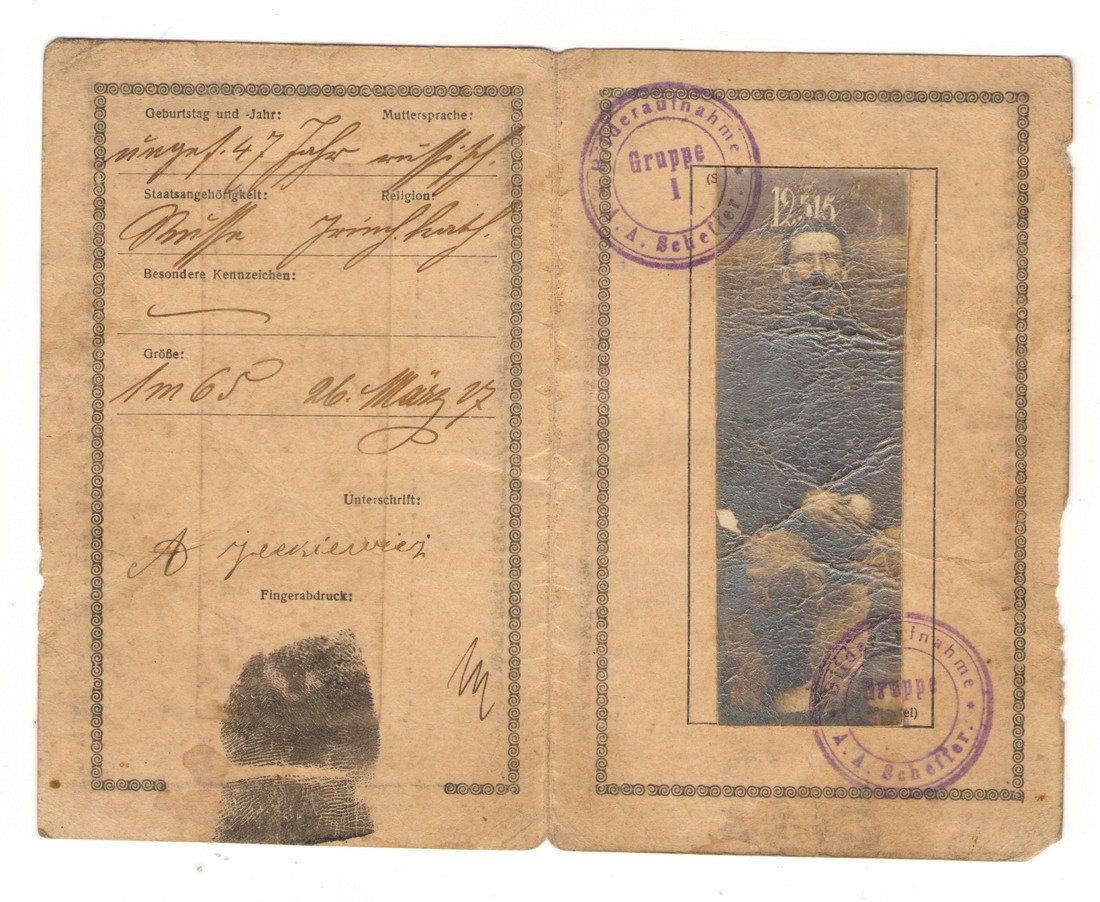 Geburtstag und -Jahr: Muttersprache:
ungef. 47 Jahr russisch.
Staatsangehörigkeit: Religion:
Russe kath.
Besondere Kennzeichen:
Größe:
1m65 26. März 17
Unterschrift:
A
Fingerabdruck:
Bilderaufnahme
Gruppe
I
A. A. Scheffer.
(S
12515
Bilderaufnahme
Gruppe
el)
A. A. Scheffer.